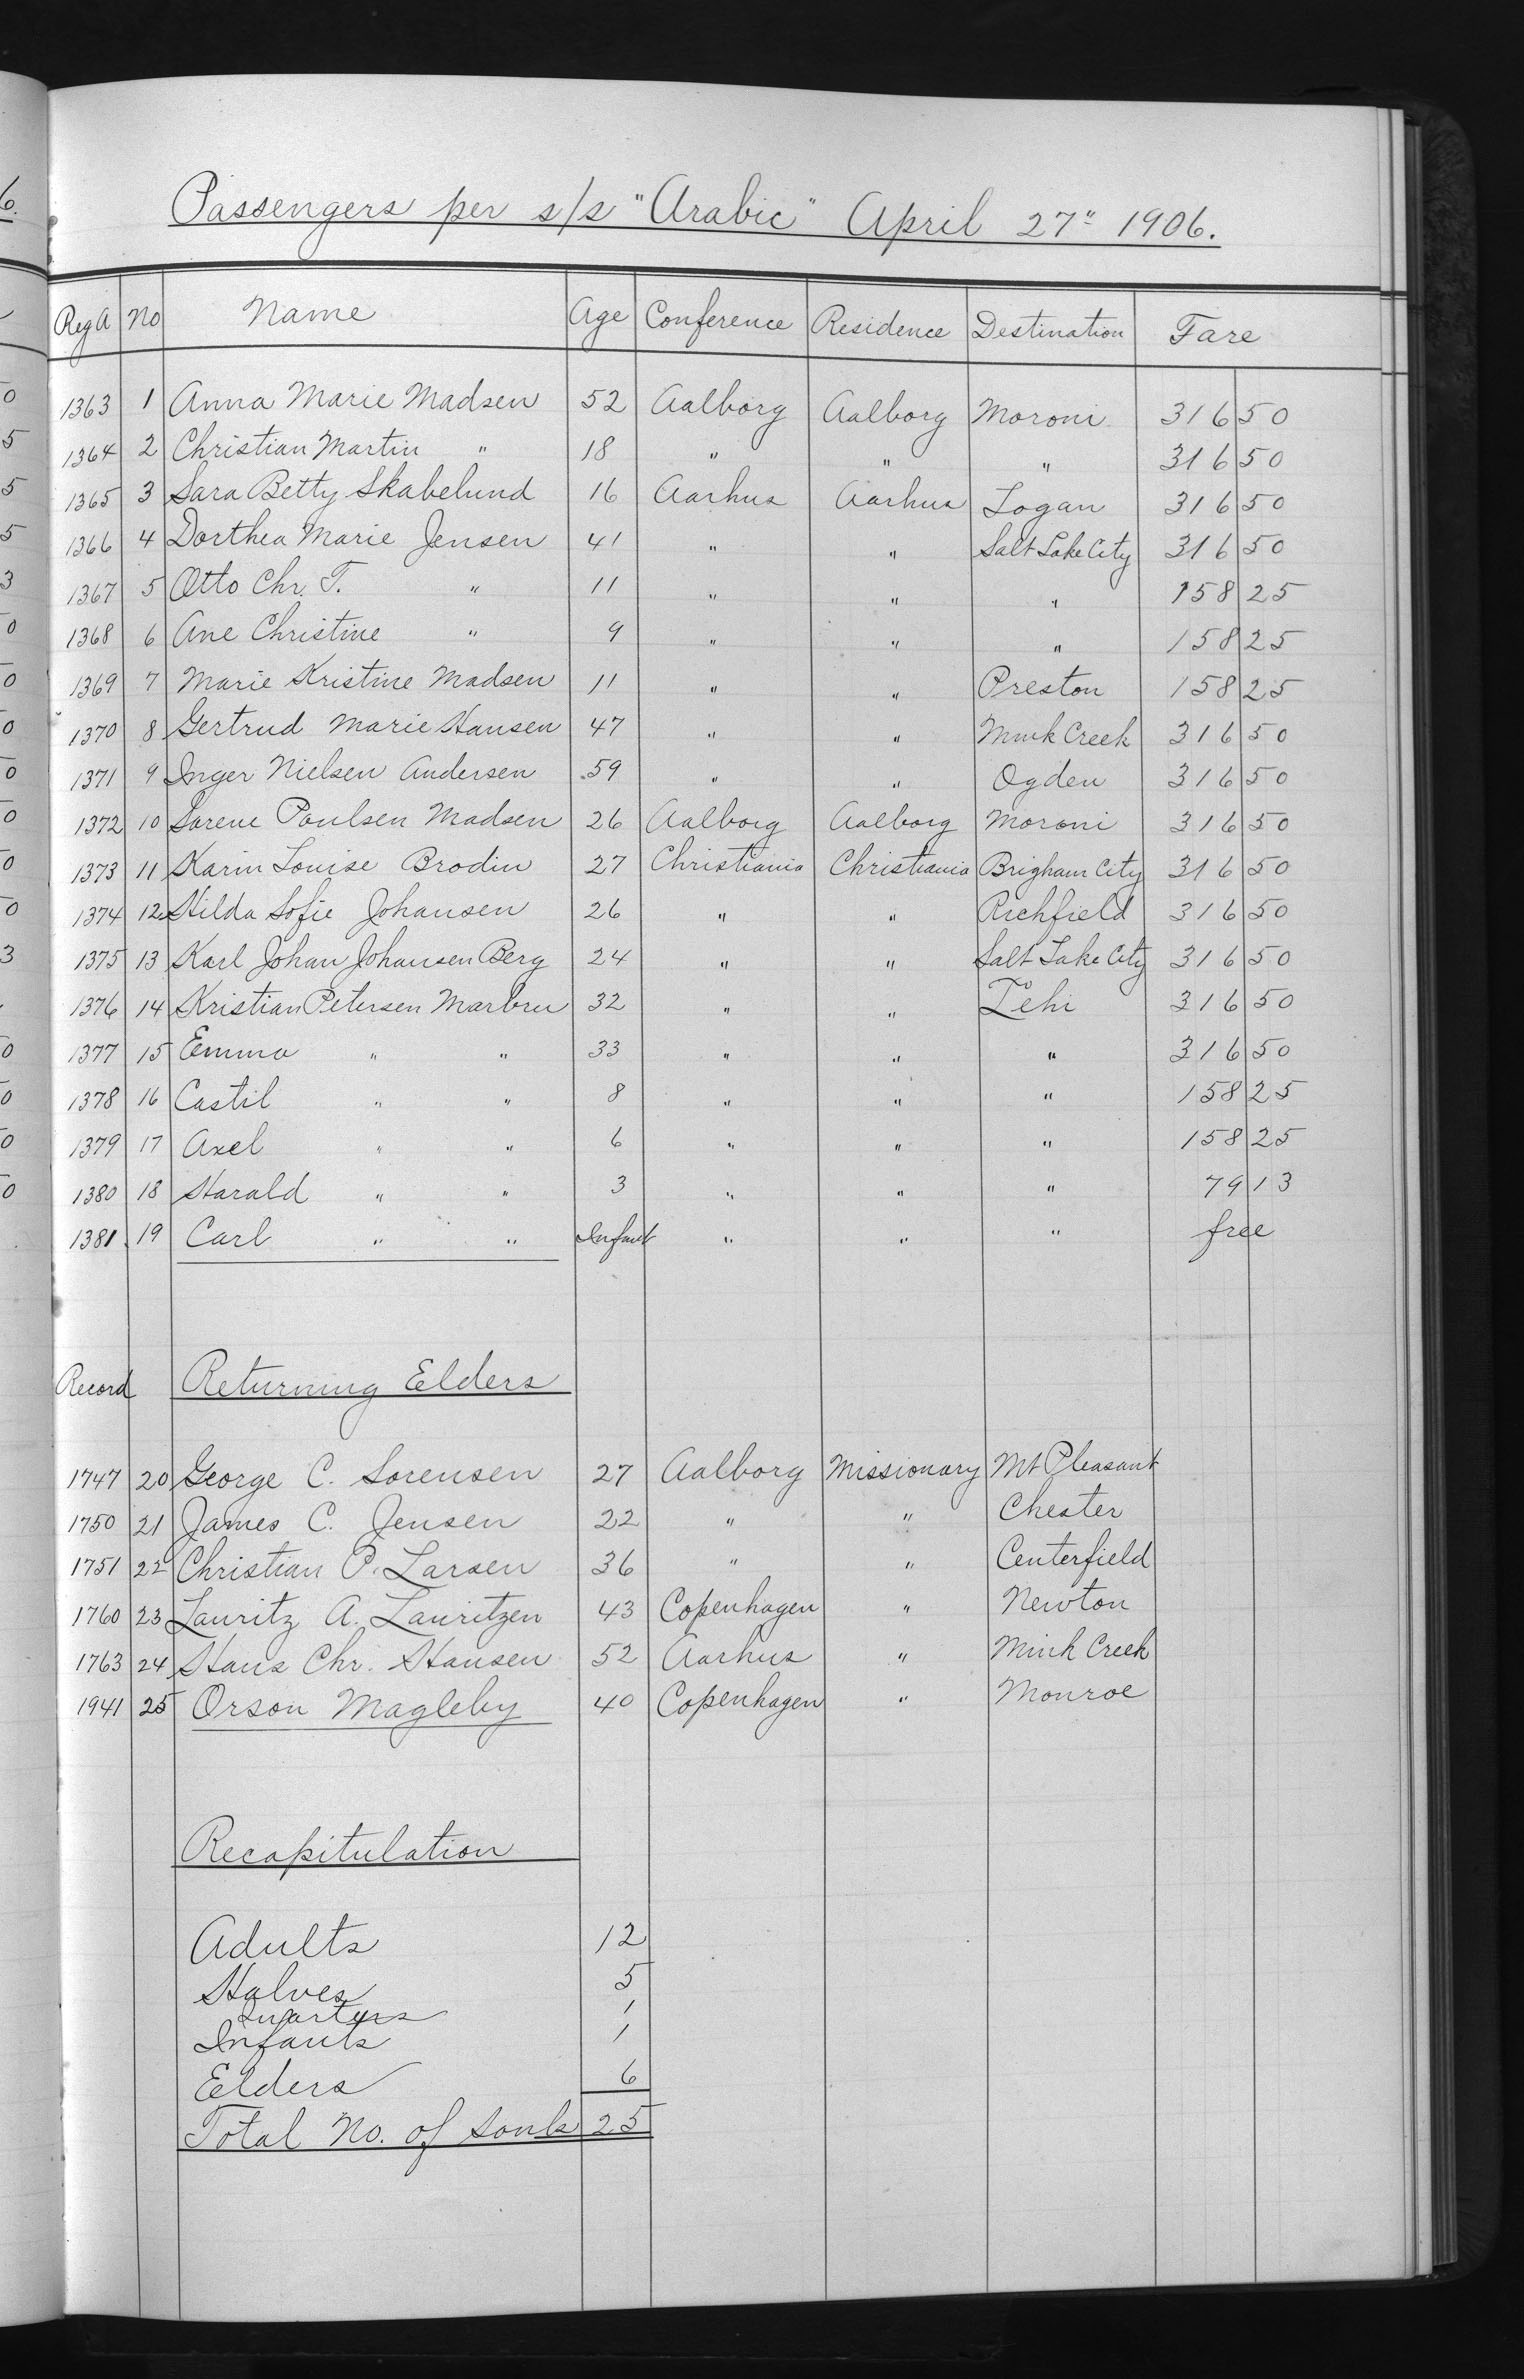 Passengers per s/s "Arabic" April 27" 1906.
Reg A No Name Age Conference Residence Destination Fare
1363 1 Anna Marie Madsen 52 Aalborg Aalborg Moroni 316 50
1364 2 Christian Martin " 18 " " " 316 50
1365 3 Sara Betty Skabelund 16 Aarhus Aarhus Logan 316 50
1366 4 Dorthea Marie Jensen 41 " " Salt Lake City 316 50
1367 5 Otto Chr. T. " 11 " " " 158 25
1368 6 Ane Christine " 9 " " " 158 25
1369 7 Marie Kristine Madsen 11 " " Preston 158 25
1370 8 Gertrud Marie Hansen 47 " " Mink Creek 316 50
1371 9 Inger Nielsen Andersen 59 " " Ogden 316 50
1372 10 Sorene Poulsen Madsen 26 Aalborg Aalborg Moroni 316 50
1373 11 Karin Louise Brodin 27 Christiania Christiania Brigham City 316 50
1374 12 Hilda Sofie Johansen 26 " " Richfield 316 50
1375 13 Karl Johan Johansen Berg 24 " " Salt Lake City 316 50
1376 14 Kristian Petersen Marbru 32 " " Lehi 316 50
1377 15 Emma " " 33 " " " 316 50
1378 16 Castil " " 8 " " " 158 25
1379 17 Axel " " 6 " " " 158 25
1380 18 Harald " " 3 " " " 79 13
1381 19 Carl " " Infant " " " free
Record Returning Elders
1747 20 George C. Sorensen 27 Aalborg Missionary Mt Pleasant
1750 21 James C. Jensen 22 " " Chester
1751 22 Christian P. Larsen 36 " " Centerfield
1760 23 Lauritz A. Lauritzen 43 Copenhagen " Newton
1763 24 Hans Chr. Hansen 52 Aarhus " Mink Creek
1941 25 Orson Magleby 40 Copenhagen " Monroe
Recapitulation
Adults 12
Halves 5
Quarters 1
Infants 1
Elders 6
Total No. of Souls 25